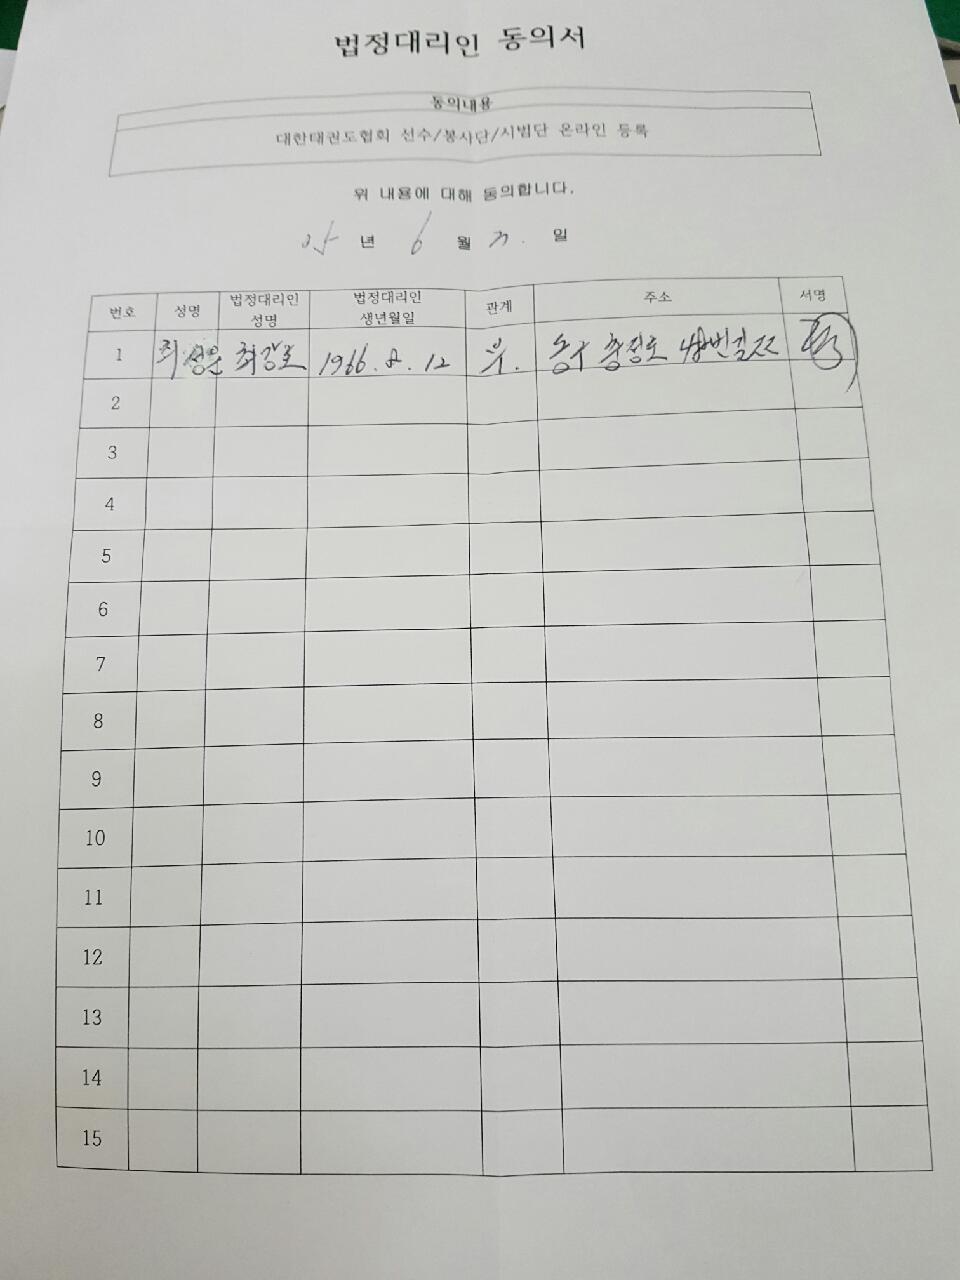 법정대리인 동의서
동의내용
대한태권도협회 선수/봉사단/시범단 온라인 등록
위 내용에 대해 동의합니다.
년 6 월 일
번호 성명 법정대리인 성명 법정대리인 생년월일 관계 주소 서명
1 최성은 최강호 1966. 8. 12 부.
2
3
4
5
6
7
8
9
10
11
12
13
14
15